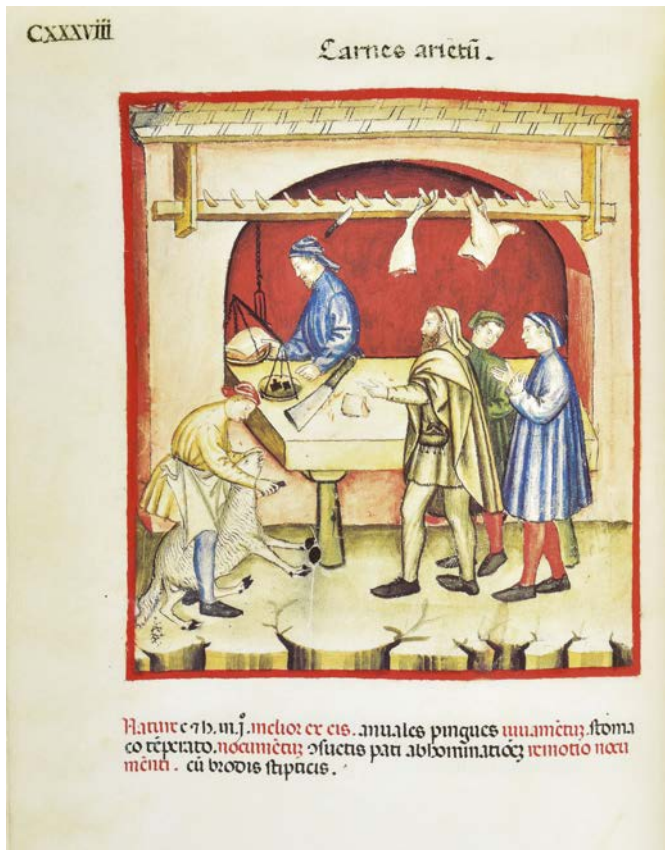 CXXXViii
Carnes arietū.
Nature c ⁊ h. in .j̊. melior ex eis. anuales pingues iuuamētuꝫ. stoma
co tēperato. nocumētuꝫ ↄsuetis pati abhominatiōeꝫ remotio nocu
menti. cū brodis stipticis.